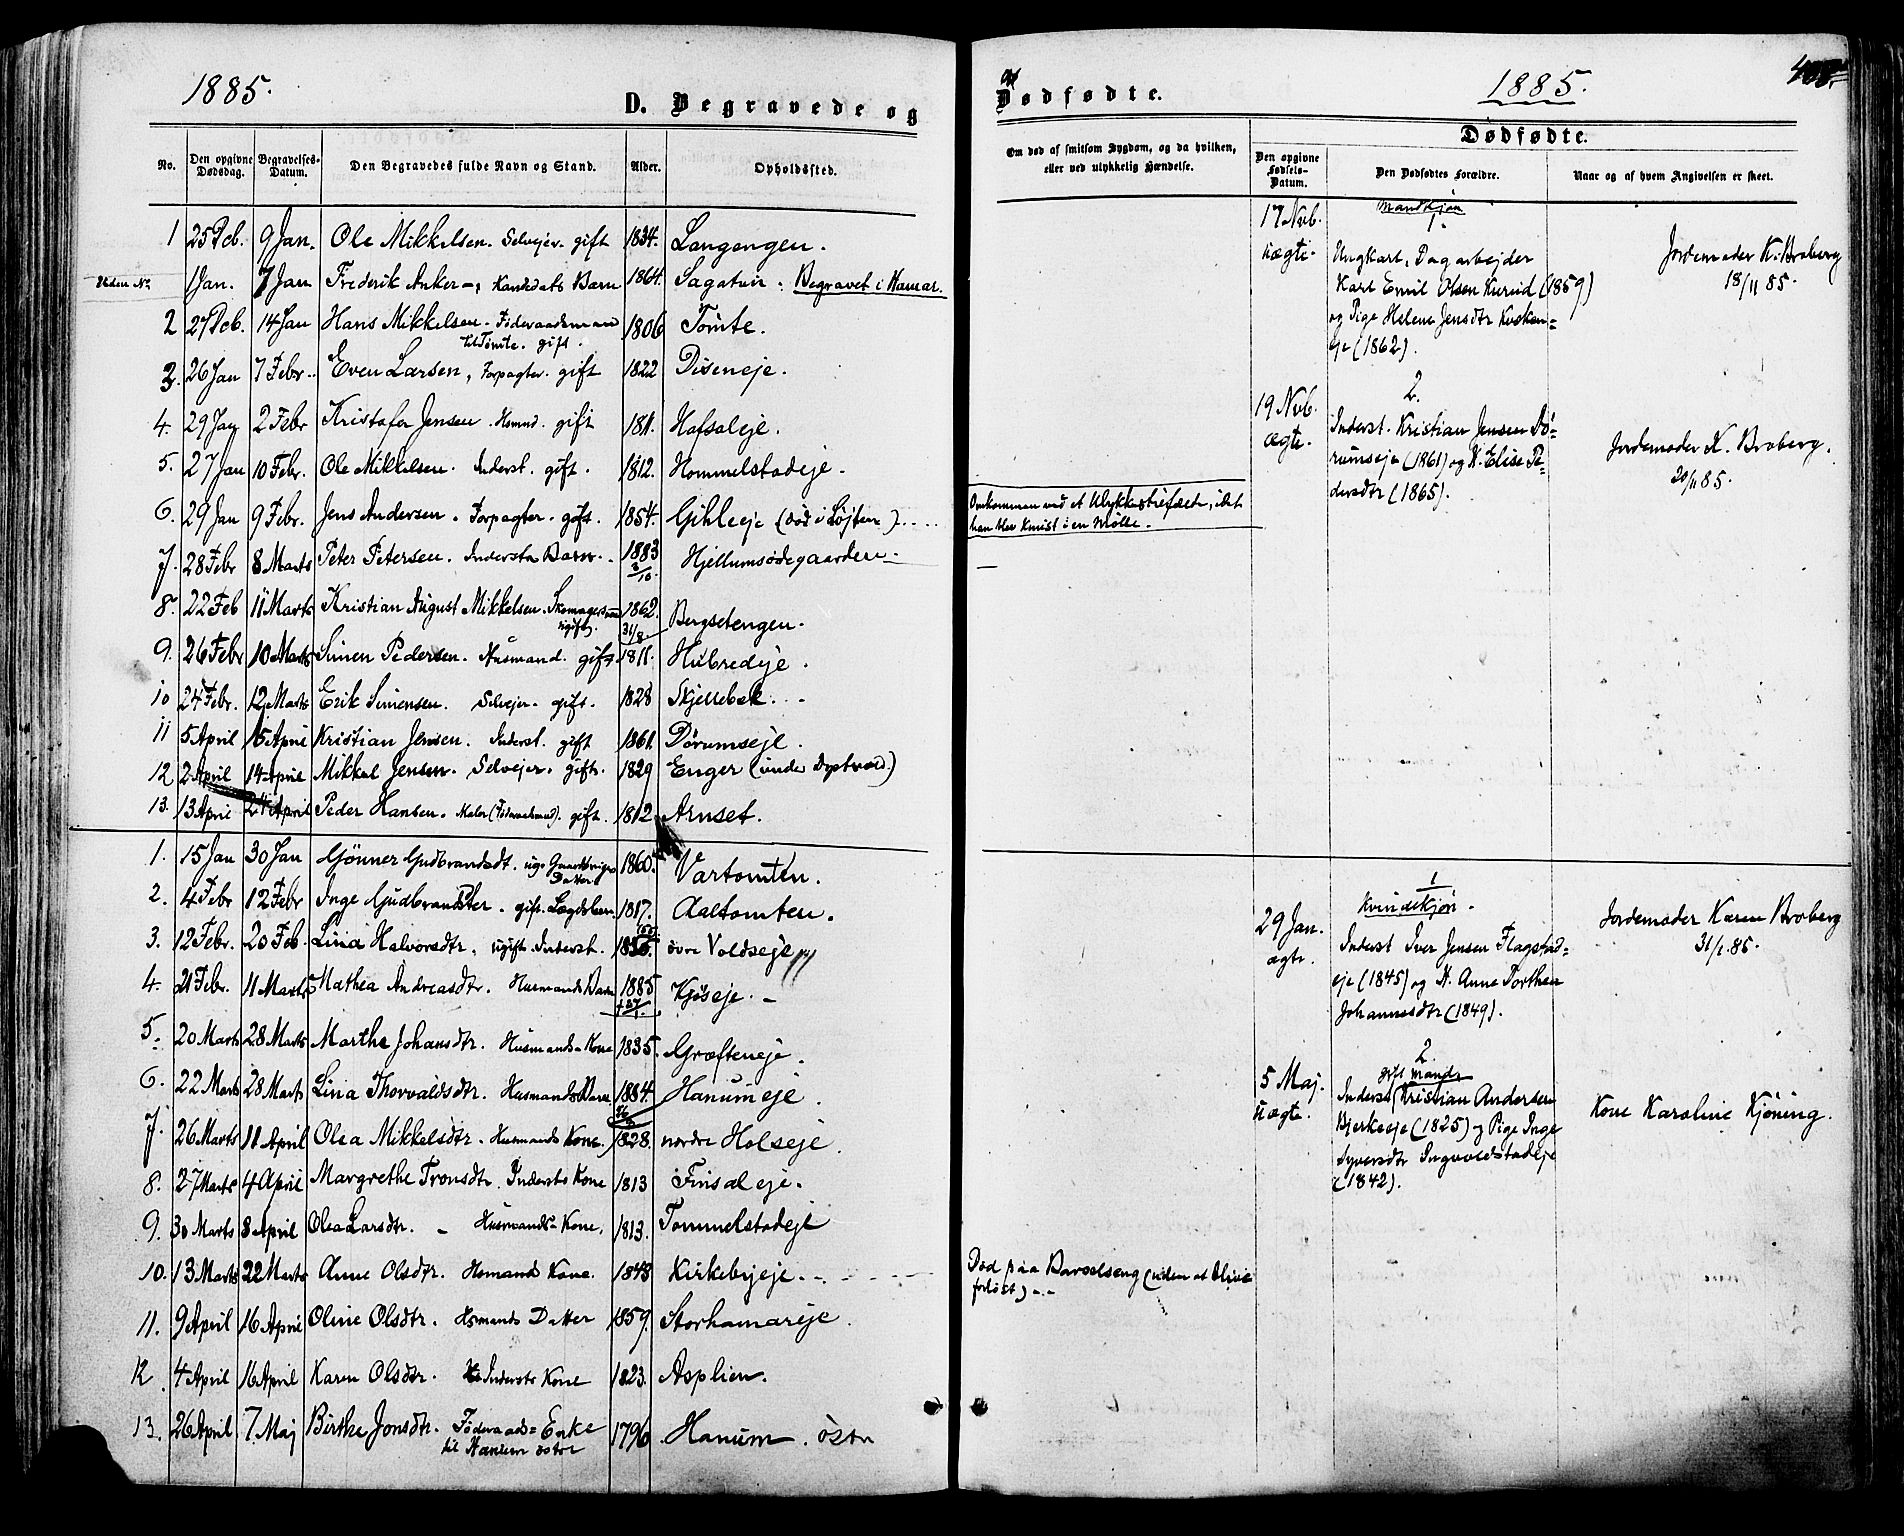 1885.
D. Begravede og
No. Den opgivne Dødsdag. Begravelses-Datum. Den Begravedes fulde Navn og Stand. Alder. Opholdssted.
1 25 Deb. 9 Jan. Ole Mikkelsen. Selvejer. gift 1834. Langengen.
Uden No 1 Jan. 7 Jan Frederik Anker -, Kandidats Barn 1864. Sagatun. Begravet i Hamar.
2 27 Deb. 14 Jan Hans Mikkelsen. Føderaadsmand 1806 Tomte.
til Tomte. gift.
3. 26 Jan 7 Febr. Even Larsen, Forpagter. gift 1822 Diseneje.
4. 29 Jan 2 Febr Kristofer Jensen. Hsmnd. gift 1811. Hofsaleje.
5. 27 Jan 10 Febr. Ole Mikkelsen. Inderst. gift. 1812. Hommelstadeje.
6. 29 Jan 9 Febr. Jens Andersen. Forpagter. gift. 1854. Gihleeje (død i Løjten)
7. 28 Febr 8 Marts Peter Petersen. Indersts Barn. 1883 Hjellumsødegaarden
8. 22 Feb 11 Marts Kristian August Mikkelsen. 1862. Bergsetengen.
ugift. 31/8
9. 26 Febr 10 Marts Simen Pedersen. Husmand. gift. 1811. Hubredeje.
10 24 Febr. 12 Marts Erik Simensen. Selvejer. gift. 1828 Skjellebæk.
11 5 April 15 April Kristian Jensen. Inderst. gift 1861. Dørumseje.
12 2 April 14 April Mikkel Jensen. Selvejer. gift. 1829 Enger (under Dystvold.)
13. 13 April 24 April Peder Hansen. Maler (Føderaadsmd). gift. 1812 Arnset.
1. 15 Jan 30 Jan Gønner Gudbrandsdt. ug. Gaardbrugers 1860. Vartomten.
Datter
2. 4 Febr 12 Febr Inge Gudbrandsdter. gift. 1817. Aaltomten.
3. 12 Febr. 20 Feb. Lina Halvorsdtr, ugift. Inderst. øvre Voldseje
4. 21 Febr. 11 Marts Mathea Andreasdtr. Husmands Barn 1885 Kjøseje.
5. 20 Marts 28 Marts Marthe Johansdtr. Husmands-Kone 1835. Grafteneje.
6. 22 Marts 28 Marts Lina Thorvaldsdtr. Husmands Barn 1884. Hanumeje.
7. 26 Marts 11 April Olea Mikkelsdtr. Husmands Kone. 1828. nordre Holseje.
8. 27 Marts 4 April Margrethe Tronsdtr. Indersts Kone 1813 Finsaleje.
9. 30 Marts 8 April Olea Larsdtr. - Husmands-Kone. 1813. Tommelstadeje
10. 13 Marts 22 Marts Anne Olsdtr. Hsmands Kone. 1843 Kirkebyeje.
11. 9 April 16 April Oline Olsdtr. Hsmands Datter 1859. Storhamareje.
12. 4 April 16 April Karen Olsdtr. Inderstr Kone 1823. Asplien.
13. 26 April 7. Maj Birthe Jonsdtr. Føderaads-Enke 1796. Hanum. østr
til Hanum østre
og
Dødfødte.
1885.
Om død af smitsom Sygdom, og da hvilken, eller ved ulykkelig Hændelse.
Dødfødte.
Den opgivne Fødsels-Datum. Den Dødfødtes Forældre. Naar og af hvem Angivelsen er skeet.
Omkommen ved et Ulykkestilfælde, idet
han blev knust i en Mølle.
Død paa Barselseng (uden at blive
forløst)
Mandkjøn
1.
17 Nvb.
uægte.
Ungkarl, Dagarbejder
Karl Emil Olsen Kurud (1859)
og Pige Helene Jensdtr
eje (1862).
Jordemoder K. Broberg
18/11 85.
2.
19 Nvb.
ægte.
Inderst. Kristian Jensen Dø-
rumseje (1861) og K. Elise Pe-
dersdtr (1865).
Jordemoder K. Broberg.
20/11 85.
1
Kvindekjøn.
29 Jan.
ægte.
Inderst Iver Jensen Flagstad-
eje (1845) og K. Anne Dorthea
Johannesdtr (1849).
Jordemoder Karen Broberg
31/1. 85.
2.
gift Mand
5 Maj.
uægte.
Inderst Kristian Andersen
Bjerkeeje (1825) og Pige Inge
Syversdtr Ingvoldstadeje
(1842).
Kone Karoline Kjøning.